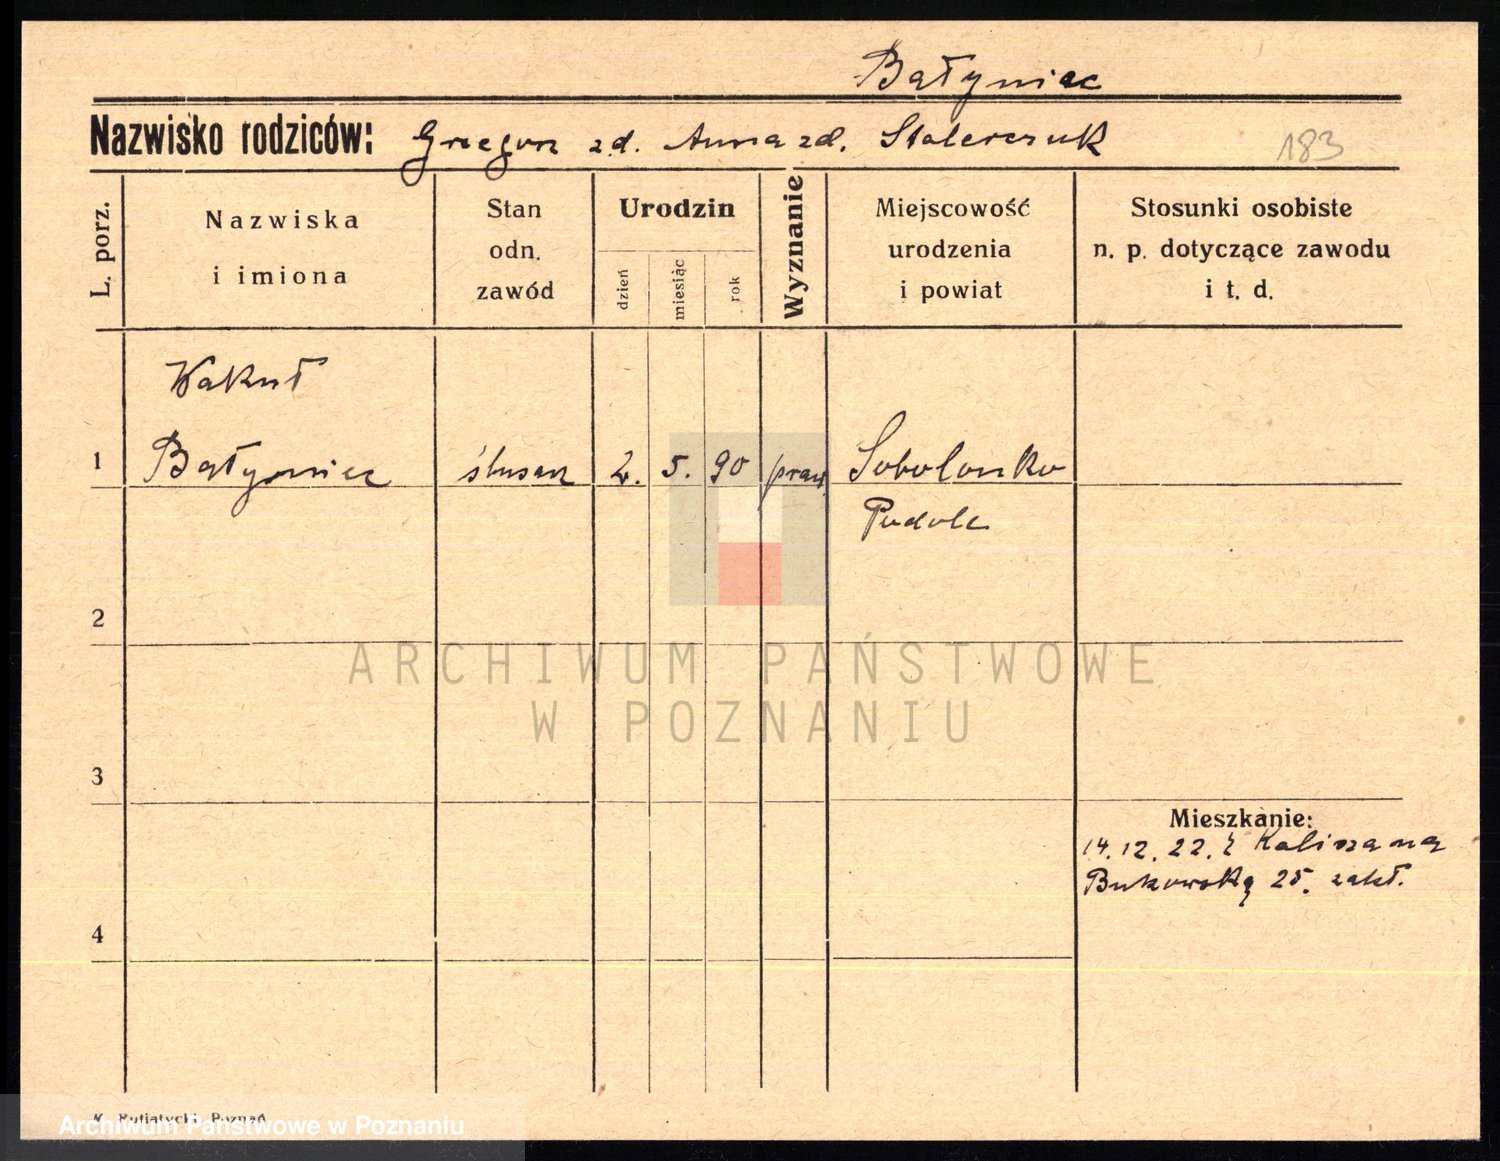 Bątyniec
Nazwisko rodziców: Grzegorz zd. Anna zd. Stolerczuk
183
L. porz.
Nazwiska
i imiona
Stan
odn.
zawód
Urodzin
dzień
miesiąc
rok
Wyznanie
Miejscowość
urodzenia
i powiat
Stosunki osobiste
n. p. dotyczące zawodu
i t. d.
Wakuł
1 Bątyniec ślusarz 2. 5. 90 praw. Sobolonko
Podole
2
ARCHIWUM PAŃSTWOWE
W POZNANIU
3
Mieszkanie:
14.12.22. z Kalisza na
Bukowską 25. zakł.
4
K. Rutiatycki Poznań
Archiwum Państwowe w Poznaniu